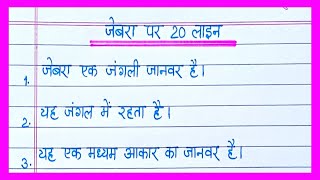 जेबरा पर 20 लाइन
1. जेबरा एक जंगली जानवर है।
2. यह जंगल में रहता है।
3. यह एक मध्यम आकार का जानवर है।